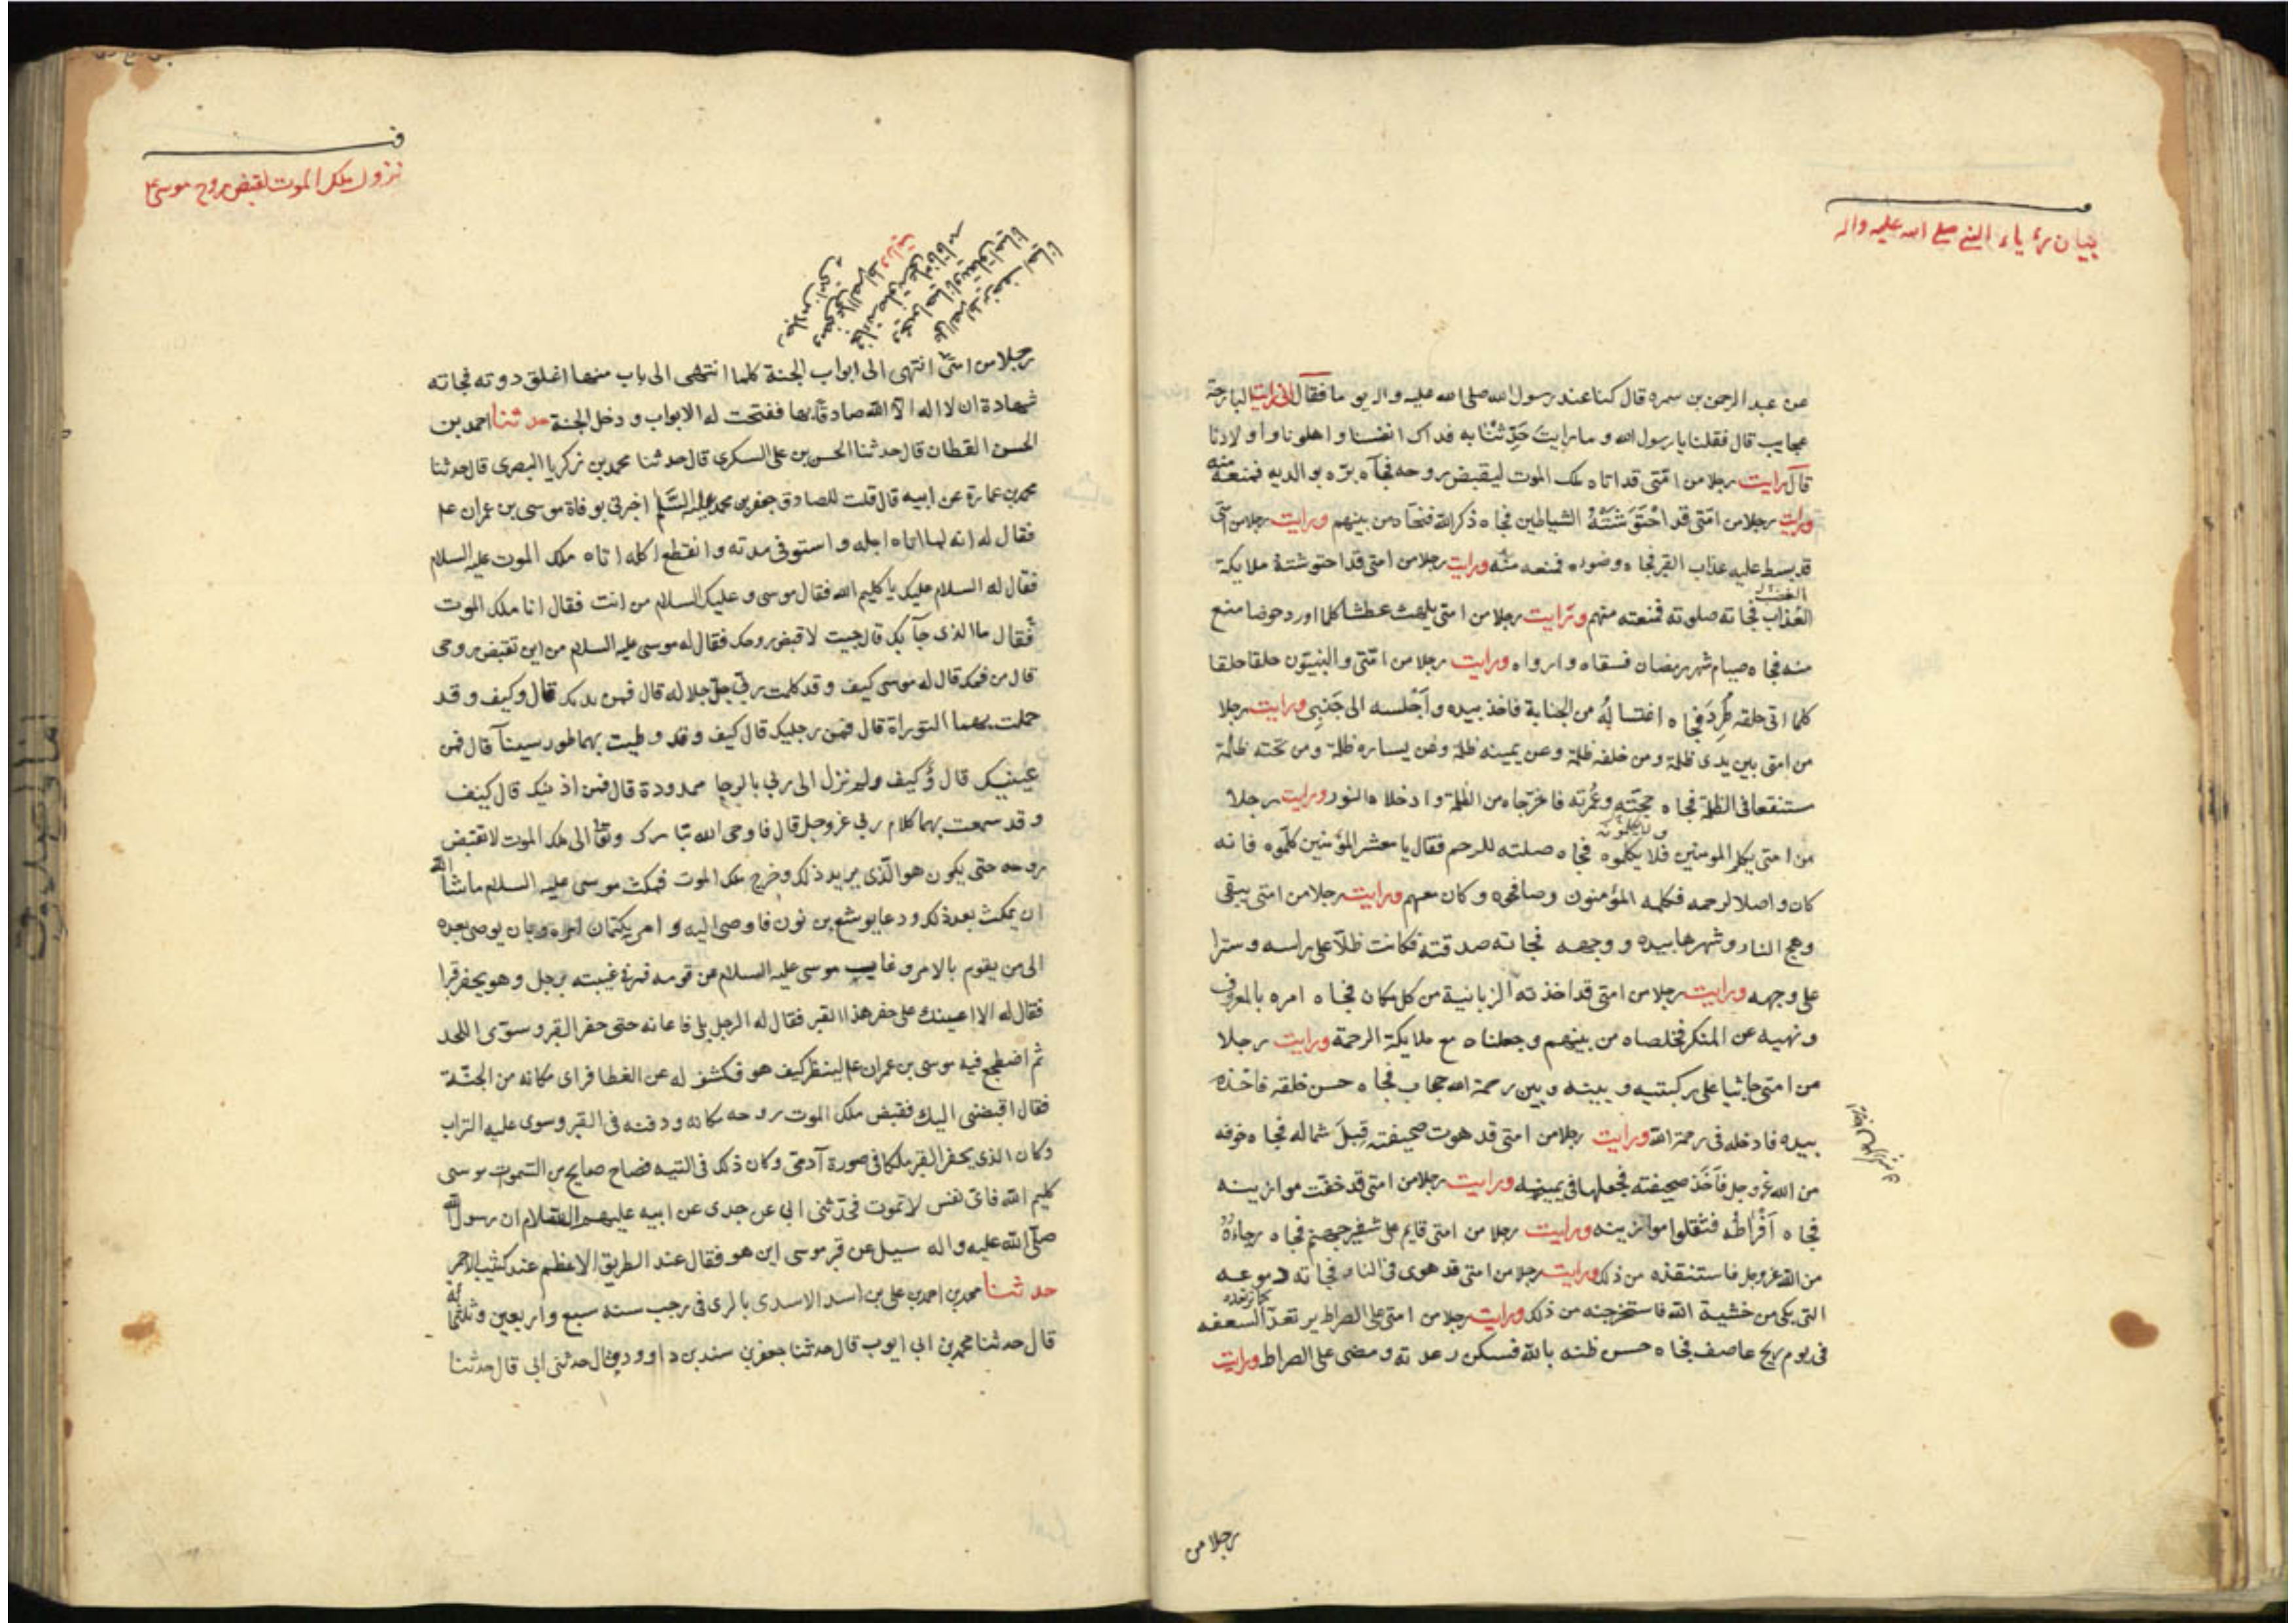 بيان رؤياء النبي صلى الله عليه واله
عن عبد الرحمن بن سمره قال كنا عند رسول الله صلى الله عليه واله يوما فقال انى رايت البارحة
عجايب قال فقلنا يا رسول الله وما رايت حَدِّثْنا به فداك انفسنا و اهلونا و اولادنا
قال رايت رجلا من امتى قد اتاه ملك الموت ليقبض روحه فجآه برّه بوالديه فمنعه منه
ورايت رجلا من امتى قد احْتَوَشَتْهُ الشياطين فجاه ذكر الله فنجاه من بينهم ورايت رجلا من امتى
قد بسط عليه عذاب القبر فجاه وضوءه فمنعه منه ورايت رجلا من امتى قد احتوشتة ملايكة
العذاب فجاته صلوته فمنعته منهم ورايت رجلا من امتى يلهث عطشا كلما اورد حوضا منع
منه فجاه صيام شهر رمضان فسقاه وارواه ورايت رجلا من امتى والنبيّون حلقا حلقا
كلما اتى حلقه طُرِدَ فجاه اغتسالُهُ من الجنابة فاخذ بيده و اَجْلسه الى جَنْبِى ورايت رجلا
من امتى بين يدى ظلمة ومن خلفه ظلمة وعن يمينه ظلمة وعن يساره ظلمة ومن تحته ظلمة
مستنقعا فى الظلمة فجاه حجّته وعُمْرته فاخرجاه من الظلمة وادخلاه النور ورايت رجلا
من امتى يكلم المومنين فلا يكلموه فجاه صلته للرحم فقال يا معشر المؤمنين كلّموه فانه
كان واصلا لرحمه فكلمه المؤمنون وصافحوه وكان معهم ورايت رجلا من امتى يتقى
وهج النار وشررها بيده ووجهه فجاته صدقته فكانت ظلّا على راسه وسترا
على وجهه ورايت رجلا من امتى قد اخذته الزبانية من كل مكان فجاه امره بالمعروف
ونهيه عن المنكر فخلصاه من بينهم وجعلناه مع ملايكة الرحمة ورايت رجلا
من امتى جاثيا على ركبتيه وبينه وبين رحمة الله حجاب فجاه حسن خلقه فاخذه
بيده فادخله فى رحمة الله ورايت رجلا من امتى قد هوت صحيفته قِبلَ شماله فجاه خوفه
من الله عز وجل فاَخَذ صحيفته فجعلها فى يمينه ورايت رجلا من امتى قد خفت موازينه
فجاه اَفْراطُه فثقلوا موازينه ورايت رجلا من امتى قايم على شفير جهنم فجاه رجاءهُ
من الله عز وجل فاستنقذه من ذلك ورايت رجلا من امتى قد هوى فى النار فجاته دموعه
التى بكى من خشية الله فاستخرجته من ذلك ورايت رجلا من امتى على الصراط يرتعد كما ترتعد السعفه
فى يوم ريح عاصف فجاه حسن ظنه بالله فسكن رعدته ومضى على الصراط ورايت
رجلا من
نزول ملك الموت لقبض روح موسى ع
رجلا من امتى انتهى الى ابواب الجنة كلما انتهى الى باب منها اغلق دونه فجاته
شهادة ان لا اله الّا الله صادقا بها ففتحت له الابواب و دخل الجنة حدثنا احمد بن
الحسن القطان قال حدثنا الحسن بن على السكري قال حدثنا محمد بن زكريا البصرى قال حدثنا
محمد بن عمارة عن ابيه قال قلت للصادق جعفر بن محمد عليه السَّلم اخبرنى بوفاة موسى بن عمران ع
فقال له انه لما اتاه اجله و استوفى مدته وانقطع اكله اتاه ملك الموت عليه السلام
فقال له السلام عليك يا كليم الله فقال موسى و عليك السلام من انت فقال انا ملك الموت
فقال ما الذى جآ بك قال جيت لاقبض روحك فقال له موسى عليه السلام من اين تقبض روحى
قال من فمك قال له موسى كيف وقد كلمت ربى جل جلاله قال فمن يدك قال وكيف وقد
حملت بهما التوراة قال فمن رجليك قال كيف و قد وطيت بهما طور سينآ قال فمن
عينيك قال وكيف ولم تزل الى ربى بالرجا ممدودة قال فمن اذنيك قال كيف
وقد سمعت بهما كلام ربى عز وجل قال فاوحى الله تبارك وتعا الى ملك الموت لا تقبض
روحه حتى يكون هو الّذى يريد ذلك وخرج ملك الموت فمكث موسى عليه السلام ماشآ الله
ان يمكث بعد ذلك ودعا يوشع بن نون فاوصى اليه و امر بكتمان امره وبان يوصى بعده
الى من يقوم بالامر وغاب موسى عليه السلام عن قومه فمر فى غيبته برجل وهو يحفر قبرا
فقال له الا اعينك على حفر هذا القبر فقال له الرجل بلى فاعانه حتى حفر القبر وسوّى اللحد
ثم اضطجع فيه موسى بن عمران ع لينظر كيف هو فكشف له عن الغطا فراى مكانه من الجنّة
فقال اقبضنى اليك فقبض ملك الموت روحه مكانه ودفنه فى القبر وسوى عليه التراب
وكان الذى يحفر القبر ملكا فى صورة آدمى وكان ذلك فى التيه فصاح صايح من السّموات موسى
كليم الله فاى نفس لا تموت فحدّثنى ابى عن جدى عن ابيه عليهم السلام ان رسول الله
صلّى الله عليه واله سيل عن قبر موسى اين هو فقال عند الطريق الاعظم عند كثيب الاحمر
حدثنا محمد بن احمد بن على بن اسد الاسدى بالرى فى رجب سنه سبع واربعين وثلثمائة
قال حدثنا محمد بن ابى ايوب قال حدثنا جعفر بن سند بن داوود قال حدثنى ابى قال حدثنا